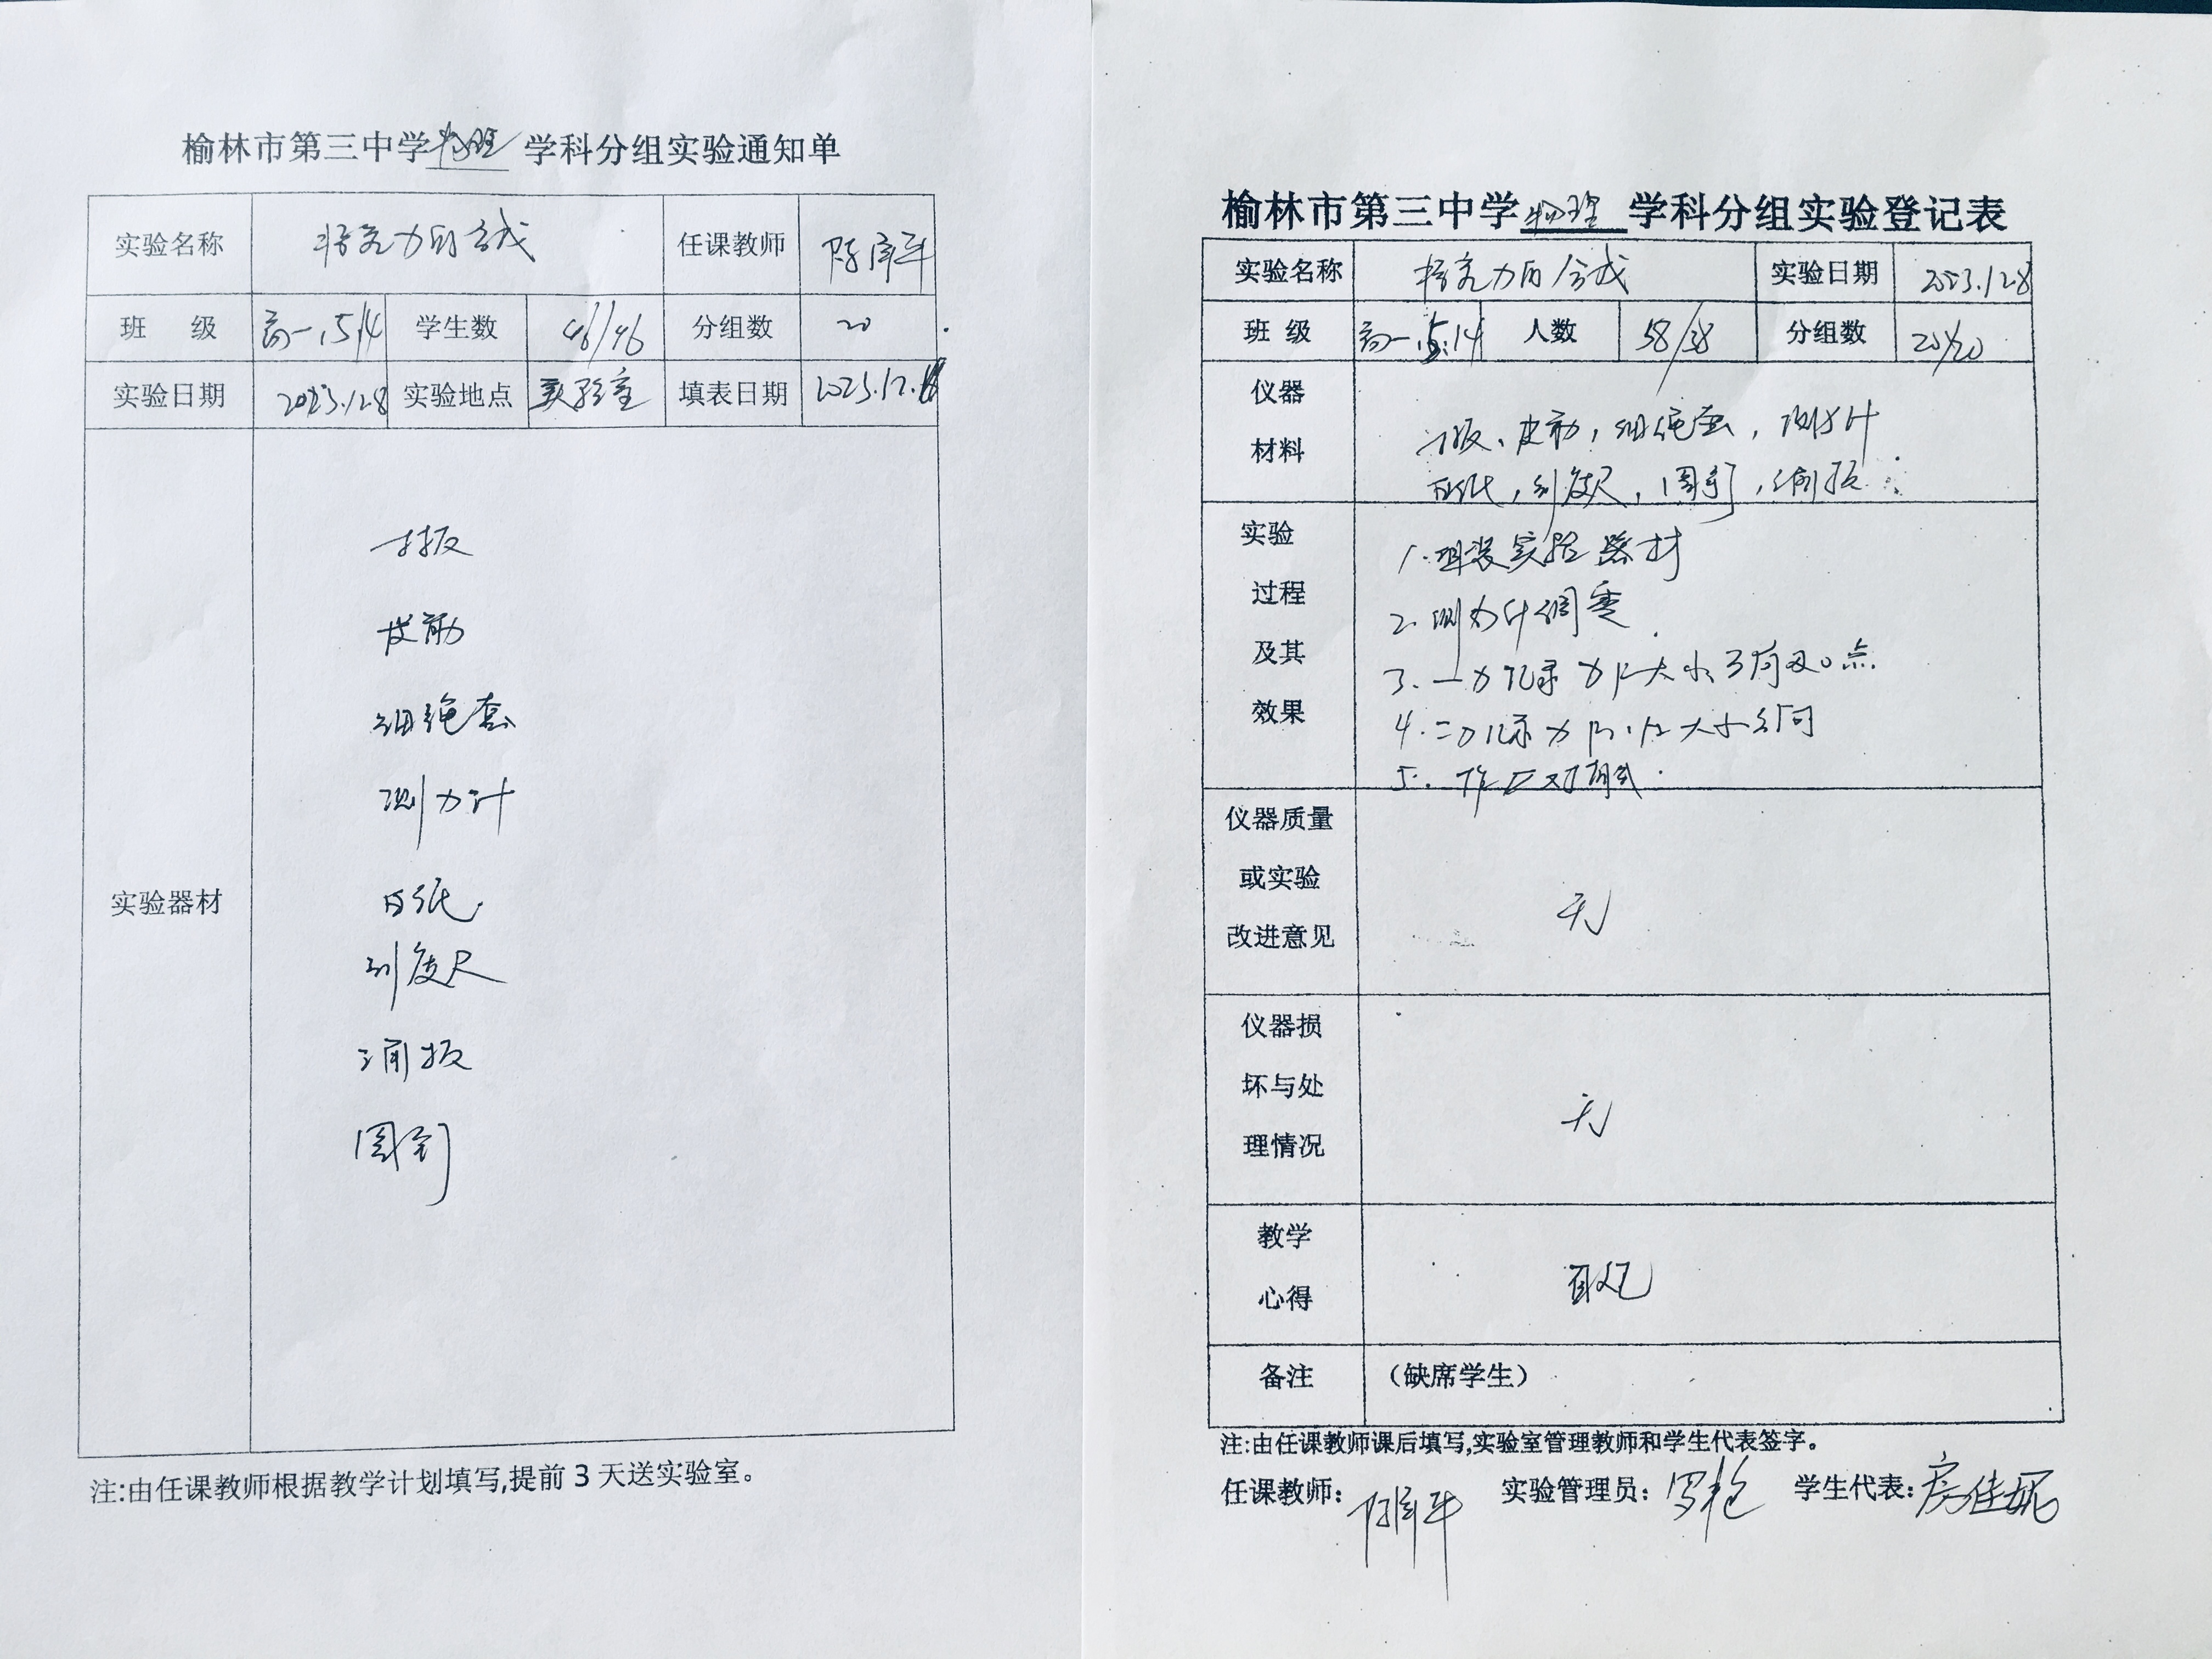 榆林市第三中学物理学科分组实验通知单
实验名称 探究力的合成 任课教师
班 级 高一.5,14 学生数 46/46 分组数 20
实验日期 2023.12.8 实验地点 实验室 填表日期 2023.12.
实验器材
木板
皮筋
细绳套
测力计
白纸
刻度尺
三角板
圆规
注:由任课教师根据教学计划填写,提前3天送实验室。
榆林市第三中学物理学科分组实验登记表
实验名称 探究力的合成 实验日期 2023.12.8
班 级 高一.5.14 人数 58/38 分组数 20/20
仪器
材料
木板、皮筋,细绳套,测力计
白纸,刻度尺,圆规,三角板
实验
过程
及其
效果
1.组装实验器材
2.测力计调零
3.一力记录力F大小方向及O点
4.二力记录力F1.F2大小方向
5.作
仪器质量
或实验
改进意见
无
仪器损
坏与处
理情况
无
教学
心得
备注 (缺席学生)
注:由任课教师课后填写,实验室管理教师和学生代表签字。
任课教师: 实验管理员: 学生代表:房佳妮